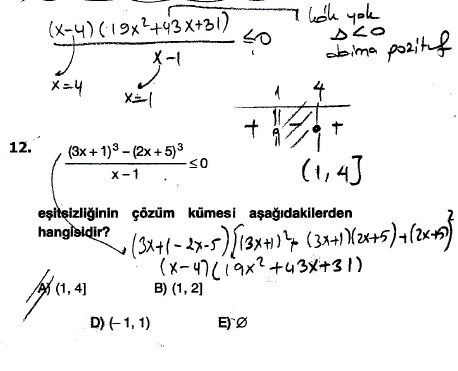 (x-4)(19x²+43x+31) / x-1 ≤0
kök yok
Δ<0
daima pozitif
x=4
x=1
1 4
+ - +
(1,4]
12. (3x+1)³-(2x+5)³ / x-1 ≤0
eşitsizliğinin çözüm kümesi aşağıdakilerden
hangisidir?
(3x+1-2x-5)[(3x+1)²+(3x+1)(2x+5)+(2x+5)²
(x-4)(19x²+43x+31)
A) (1, 4] B) (1, 2]
D) (-1, 1) E) Ø